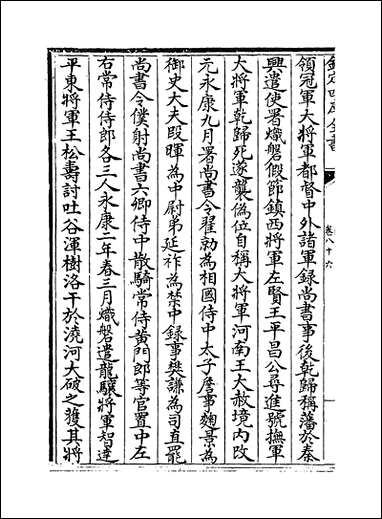 欽定四庫全書
卷八十六
領冠軍大將軍都督中外諸軍録尚書事後乾歸稱藩於秦
興遣使署熾磐假節鎮西將軍左賢王平昌公尋進號撫軍
大將軍乾歸死遂襲偽位自稱大將軍河南王大赦境内改
元永康九月署尚書令翟勍為相國侍中太子詹事麴景為
御史大夫段暉為中尉弟延祚為禁中録事樊謙為司直罷
尚書令僕射尚書六卿侍中散騎常侍黄門郎等官置中左
右常侍侍郎各三人永康二年春三月熾磐遣龍驤將軍智達
平東將軍王松壽討吐谷渾樹洛干於澆河大破之獲其將